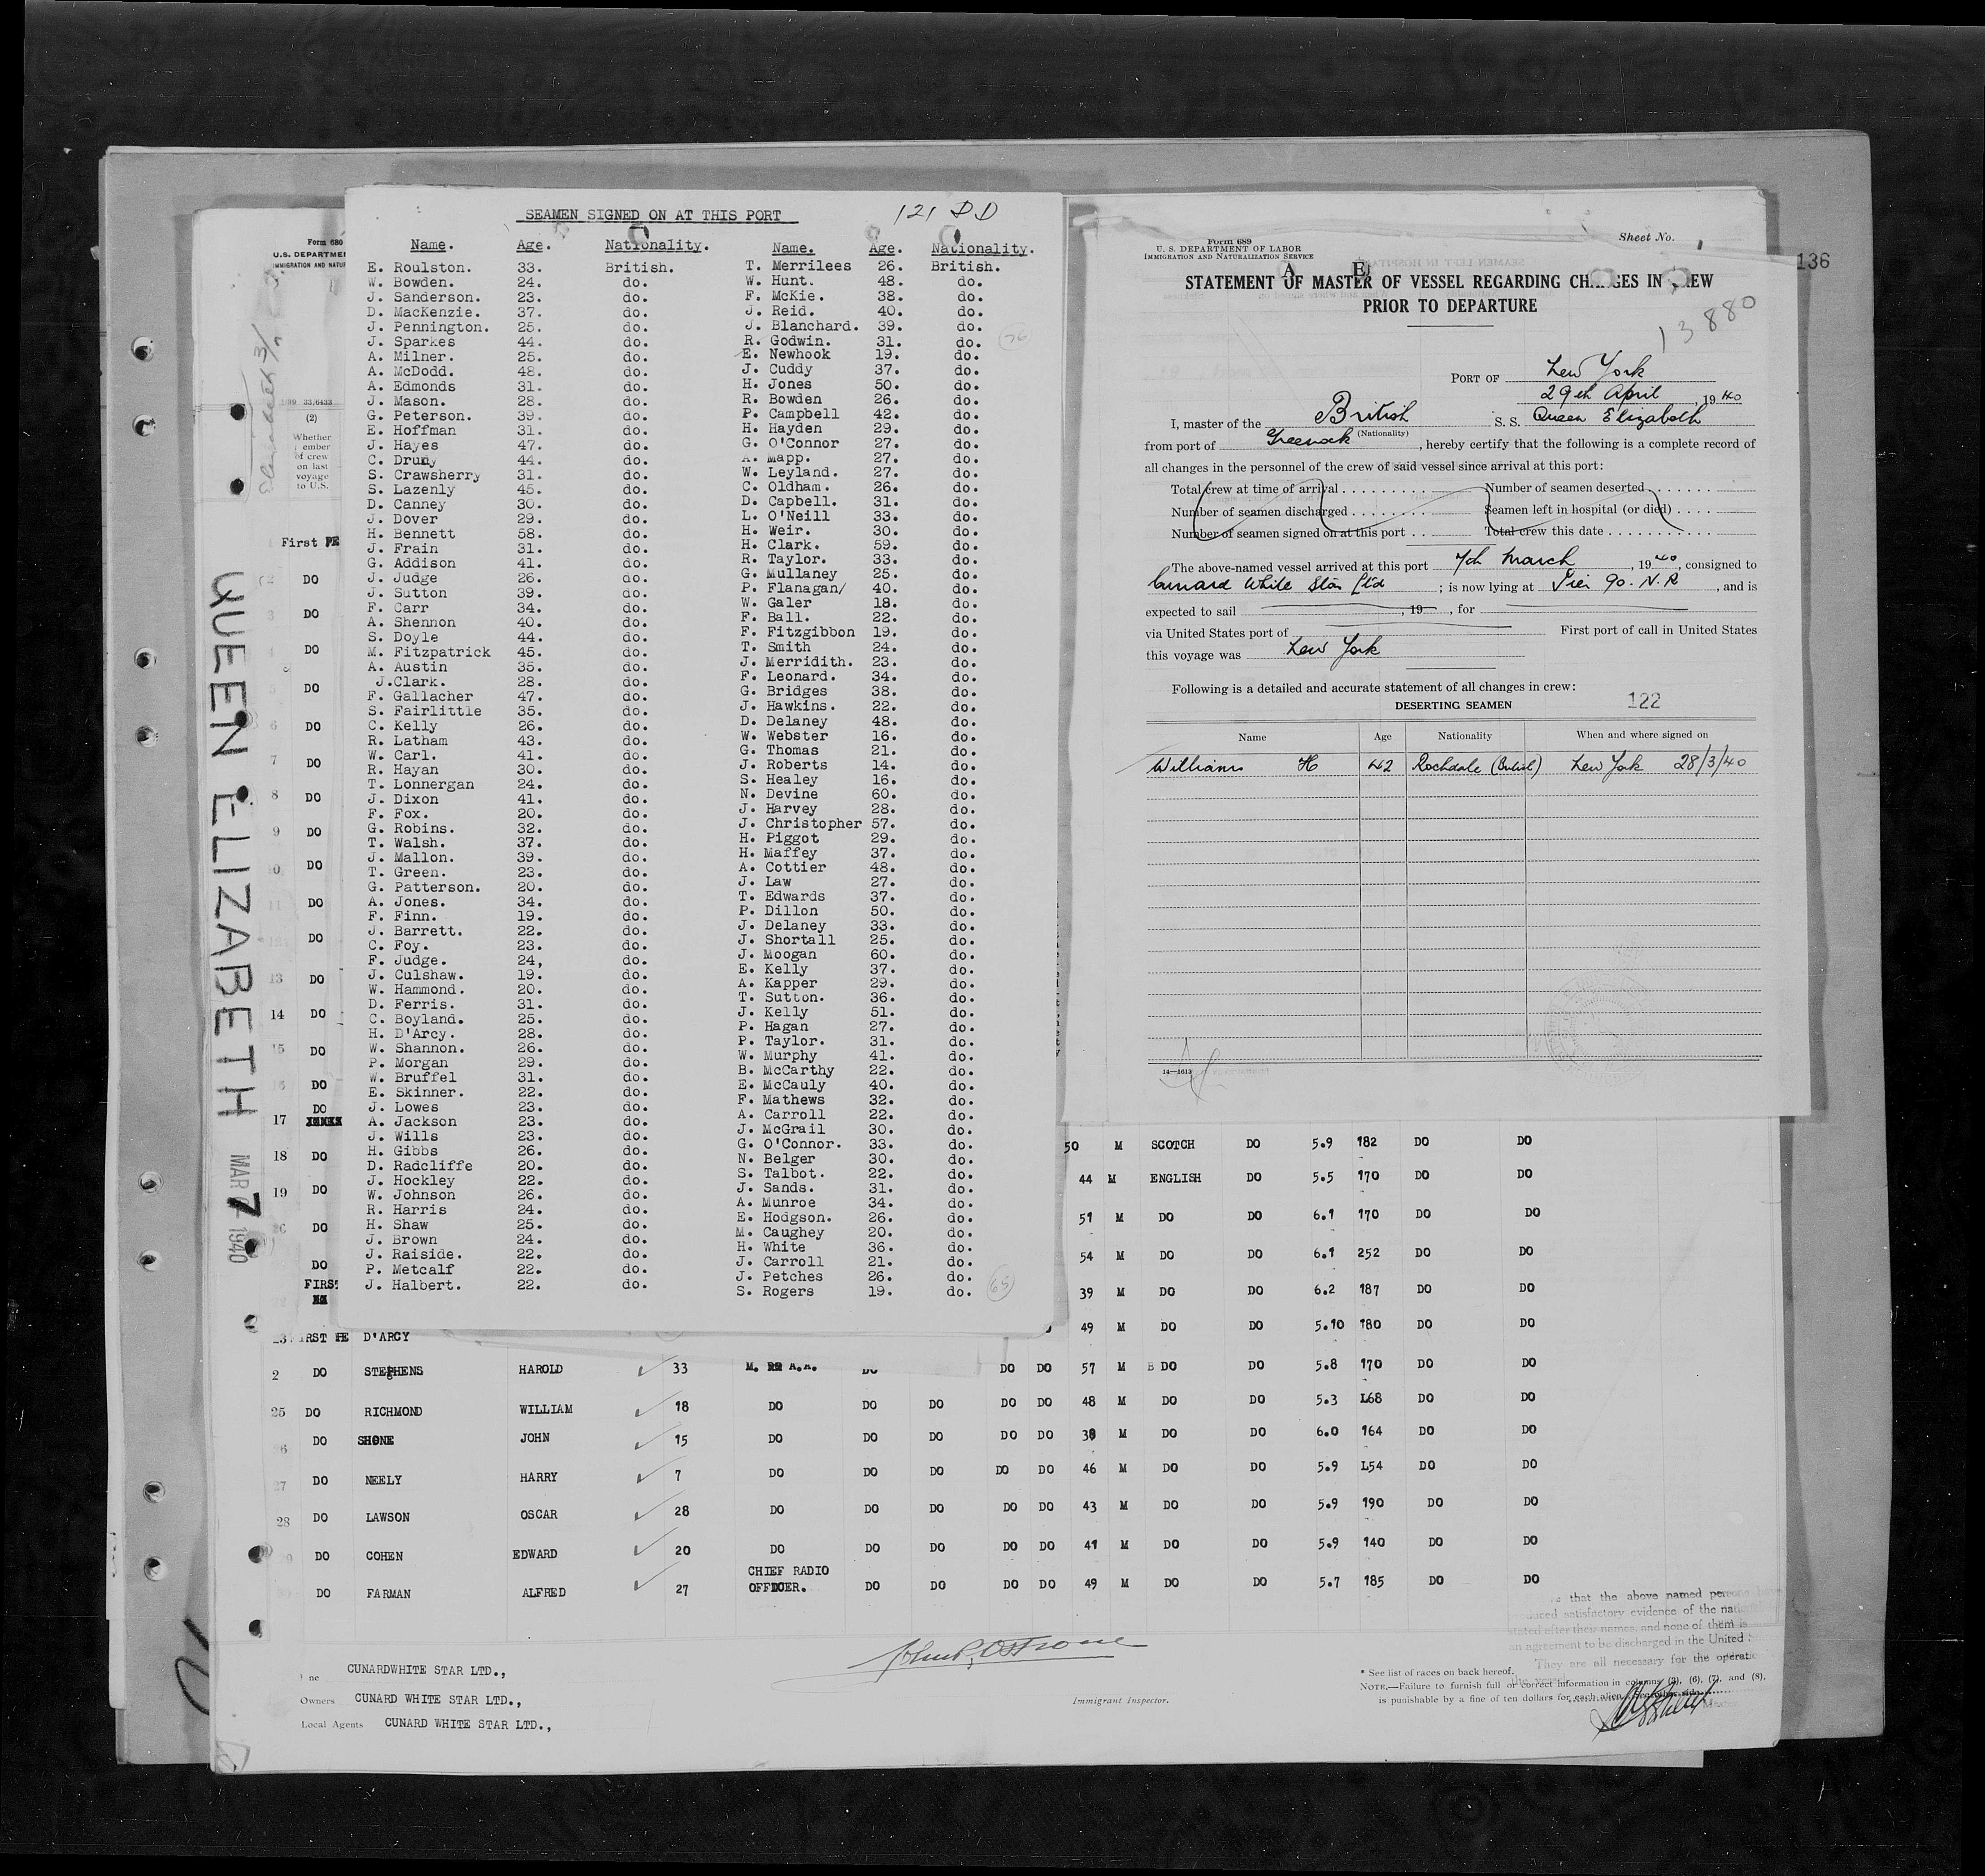 SEAMEN SIGNED ON AT THIS PORT 121 DD
Name. Age. Nationality. Name. Age. Nationality.
E. Roulston. 33. British. T. Merrilees 26. British.
W. Bowden. 24. do. W. Hunt. 48. do.
J. Sanderson. 23. do. F. McKie. 38. do.
D. MacKenzie. 37. do. J. Reid. 40. do.
J. Pennington. 25. do. J. Blanchard. 39. do.
J. Sparkes 44. do. R. Godwin. 31. do.
A. Milner. 25. do. E. Newhook 19. do.
A. McDodd. 48. do. J. Cuddy 37. do.
A. Edmonds 31. do. H. Jones 50. do.
J. Mason. 28. do. R. Bowden 26. do.
G. Peterson. 39. do. P. Campbell 42. do.
E. Hoffman 31. do. H. Hayden 29. do.
J. Hayes 47. do. G. O'Connor 27. do.
C. Drumy 44. do. A. Mapp. 27. do.
S. Crawsherry 31. do. W. Leyland. 27. do.
S. Lazenly 45. do. C. Oldham. 26. do.
D. Canney 30. do. D. Capbell. 31. do.
J. Dover 29. do. L. O'Neill 33. do.
H. Bennett 58. do. H. Weir. 30. do.
J. Frain 31. do. H. Clark. 59. do.
G. Addison 41. do. R. Taylor. 33. do.
J. Judge 26. do. G. Mullaney 25. do.
J. Sutton 39. do. P. Flanagan/ 40. do.
F. Carr 34. do. W. Galer 18. do.
A. Shennon 40. do. F. Ball. 22. do.
S. Doyle 44. do. F. Fitzgibbon 19. do.
M. Fitzpatrick 45. do. T. Smith 24. do.
A. Austin 35. do. J. Merridith. 23. do.
J.Clark. 28. do. F. Leonard. 34. do.
F. Gallacher 47. do. G. Bridges 38. do.
S. Fairlittle 35. do. J. Hawkins. 22. do.
C. Kelly 26. do. D. Delaney 48. do.
R. Latham 43. do. W. Webster 16. do.
W. Carl. 41. do. G. Thomas 21. do.
R. Hayan 30. do. J. Roberts 14. do.
T. Lonnergan 24. do. S. Healey 16. do.
J. Dixon 41. do. N. Devine 60. do.
F. Fox. 20. do. J. Harvey 28. do.
G. Robins. 32. do. J. Christopher 57. do.
T. Walsh. 37. do. H. Piggot 29. do.
J. Mallon. 39. do. H. Maffey 37. do.
T. Green. 23. do. A. Cottier 48. do.
G. Patterson. 20. do. J. Law 27. do.
A. Jones. 34. do. T. Edwards 37. do.
F. Finn. 19. do. P. Dillon 50. do.
J. Barrett. 22. do. J. Delaney 33. do.
C. Foy. 23. do. J. Shortall 25. do.
F. Judge. 24, do. J. Moogan 60. do.
J. Culshaw. 19. do. E. Kelly 37. do.
W. Hammond. 20. do. A. Kapper 29. do.
D. Ferris. 31. do. T. Sutton. 36. do.
C. Boyland. 25. do. J. Kelly 51. do.
H. D'Arcy. 28. do. P. Hagan 27. do.
W. Shannon. 26. do. P. Taylor. 31. do.
P. Morgan 29. do. W. Murphy 41. do.
W. Bruffel 31. do. B. McCarthy 22. do.
E. Skinner. 22. do. E. McCauly 40. do.
J. Lowes 23. do. F. Mathews 32. do.
A. Jackson 23. do. A. Carroll 22. do.
J. Wills 23. do. J. McGrail 30. do.
H. Gibbs 26. do. G. O'Connor. 33. do.
D. Radcliffe 20. do. N. Belger 30. do.
J. Hockley 22. do. S. Talbot. 22. do.
W. Johnson 26. do. J. Sands. 31. do.
R. Harris 24. do. A. Munroe 34. do.
H. Shaw 25. do. E. Hodgson. 26. do.
J. Brown 24. do. M. Caughey 20. do.
J. Raiside. 22. do. H. White 36. do.
P. Metcalf 22. do. J. Carroll 21. do.
J. Halbert. 22. do. J. Petches 26. do.
S. Rogers 19. do.
65
Form 689
U. S. DEPARTMENT OF LABOR
IMMIGRATION AND NATURALIZATION SERVICE
Sheet No.
136
A E
STATEMENT OF MASTER OF VESSEL REGARDING CHANGES IN CREW
PRIOR TO DEPARTURE
13880
PORT OF New York
29th April, 1940
I, master of the British (Nationality) S. S. Queen Elizabeth
from port of Greenock, hereby certify that the following is a complete record of
all changes in the personnel of the crew of said vessel since arrival at this port:
Total crew at time of arrival Number of seamen deserted
Number of seamen discharged Seamen left in hospital (or died)
Number of seamen signed on at this port Total crew this date
The above-named vessel arrived at this port 7th March, 1940, consigned to
Cunard White Star Ltd; is now lying at Pier 90. N.R, and is
expected to sail , 19 , for
via United States port of First port of call in United States
this voyage was New York
Following is a detailed and accurate statement of all changes in crew:
DESERTING SEAMEN 122
Name Age Nationality When and where signed on
Williams H 42 Rochdale (British) New York 28/3/40
14—1613
Form 680
U.S. DEPARTME
IMMIGRATION AND NATUR
(2)
Whether
ember
of crew
on last
voyage
to U.S.
First
QUEEN ELIZABETH
MAR 7 1940
2 DO
3 DO
DO
5 DO
6 DO
7 DO
8 DO
9 DO
10 DO
11 DO
DO
13 DO
14 DO
15 DO
16 DO
17 DO
18 DO 50 M SCOTCH DO 5.9 182 DO DO
19 DO 44 M ENGLISH DO 5.5 170 DO DO
DO 51 M DO DO 6.1 170 DO DO
DO 54 M DO DO 6.1 252 DO DO
FIRST 39 M DO DO 6.2 187 DO DO
23 RST D'ARCY 49 M DO DO 5.10 180 DO DO
2 DO STEPHENS HAROLD 33 DO DO 57 M B DO DO 5.8 170 DO DO
25 DO RICHMOND WILLIAM 18 DO DO DO DO DO 48 M DO DO 5.3 L68 DO DO
26 DO SHONE JOHN 15 DO DO DO DO DO 38 M DO DO 6.0 164 DO DO
27 DO NEELY HARRY 7 DO DO DO DO DO 46 M DO DO 5.9 L54 DO DO
28 DO LAWSON OSCAR 28 DO DO DO DO DO 43 M DO DO 5.9 190 DO DO
DO COHEN EDWARD 20 DO DO DO DO DO 41 M DO DO 5.9 140 DO DO
DO FARMAN ALFRED 27 CHIEF RADIO OFFICER. DO DO DO DO 49 M DO DO 5.7 185 DO DO
that the above named
satisfactory evidence of the
stated after their names, and none of them is
an agreement to be discharged in the United
They are all necessary for the
ne CUNARDWHITE STAR LTD.,
Owners CUNARD WHITE STAR LTD.,
Local Agents CUNARD WHITE STAR LTD.,
Immigrant Inspector.
* See list of races on back hereof.
NOTE.—Failure to furnish full or correct information in columns (2), (6), (7), and (8),
is punishable by a fine of ten dollars for each alien.